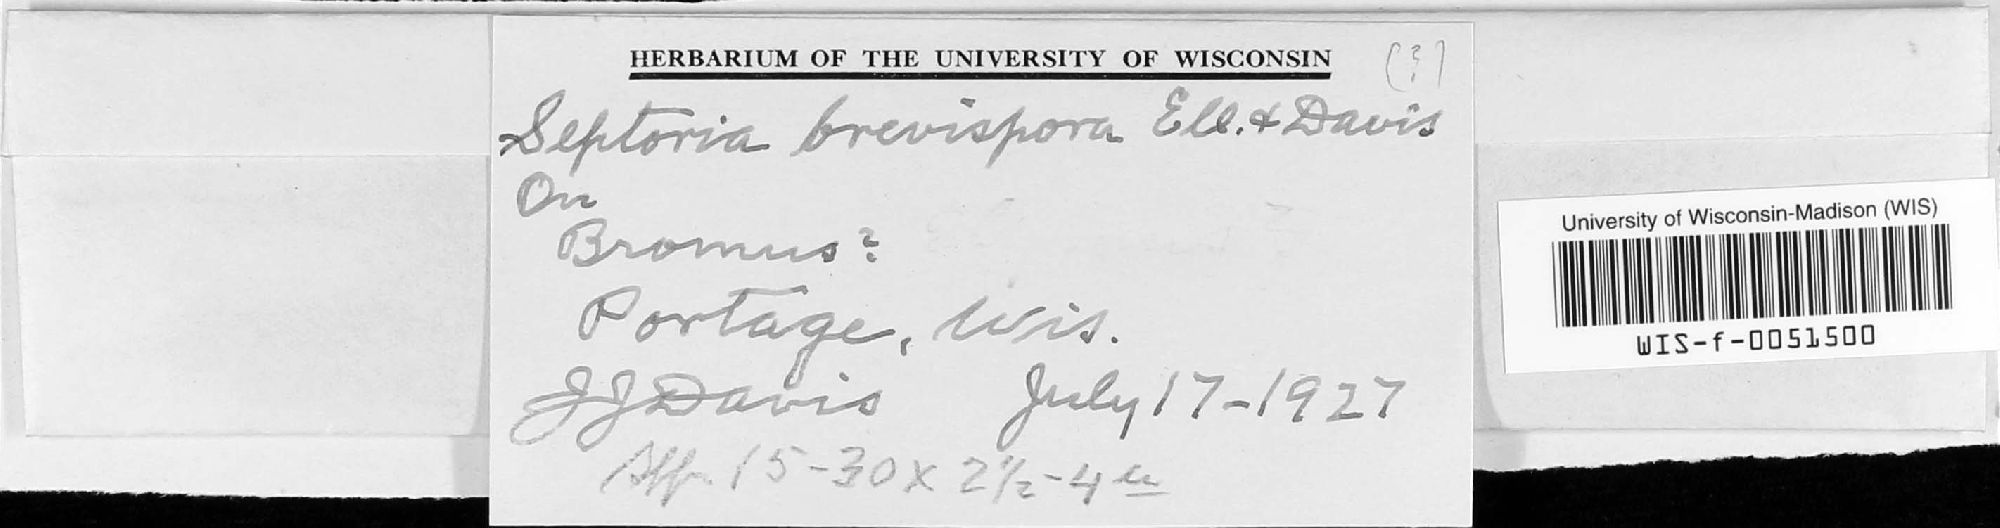 HERBARIUM OF THE UNIVERSITY OF WISCONSIN (3)
Septoria brevispora Ell. & Davis
On
Bromus?
Portage, Wis.
JJ Davis July 17-1927
15-30 x 2½-4
University of Wisconsin-Madison (WIS)
WIS-f-0051500